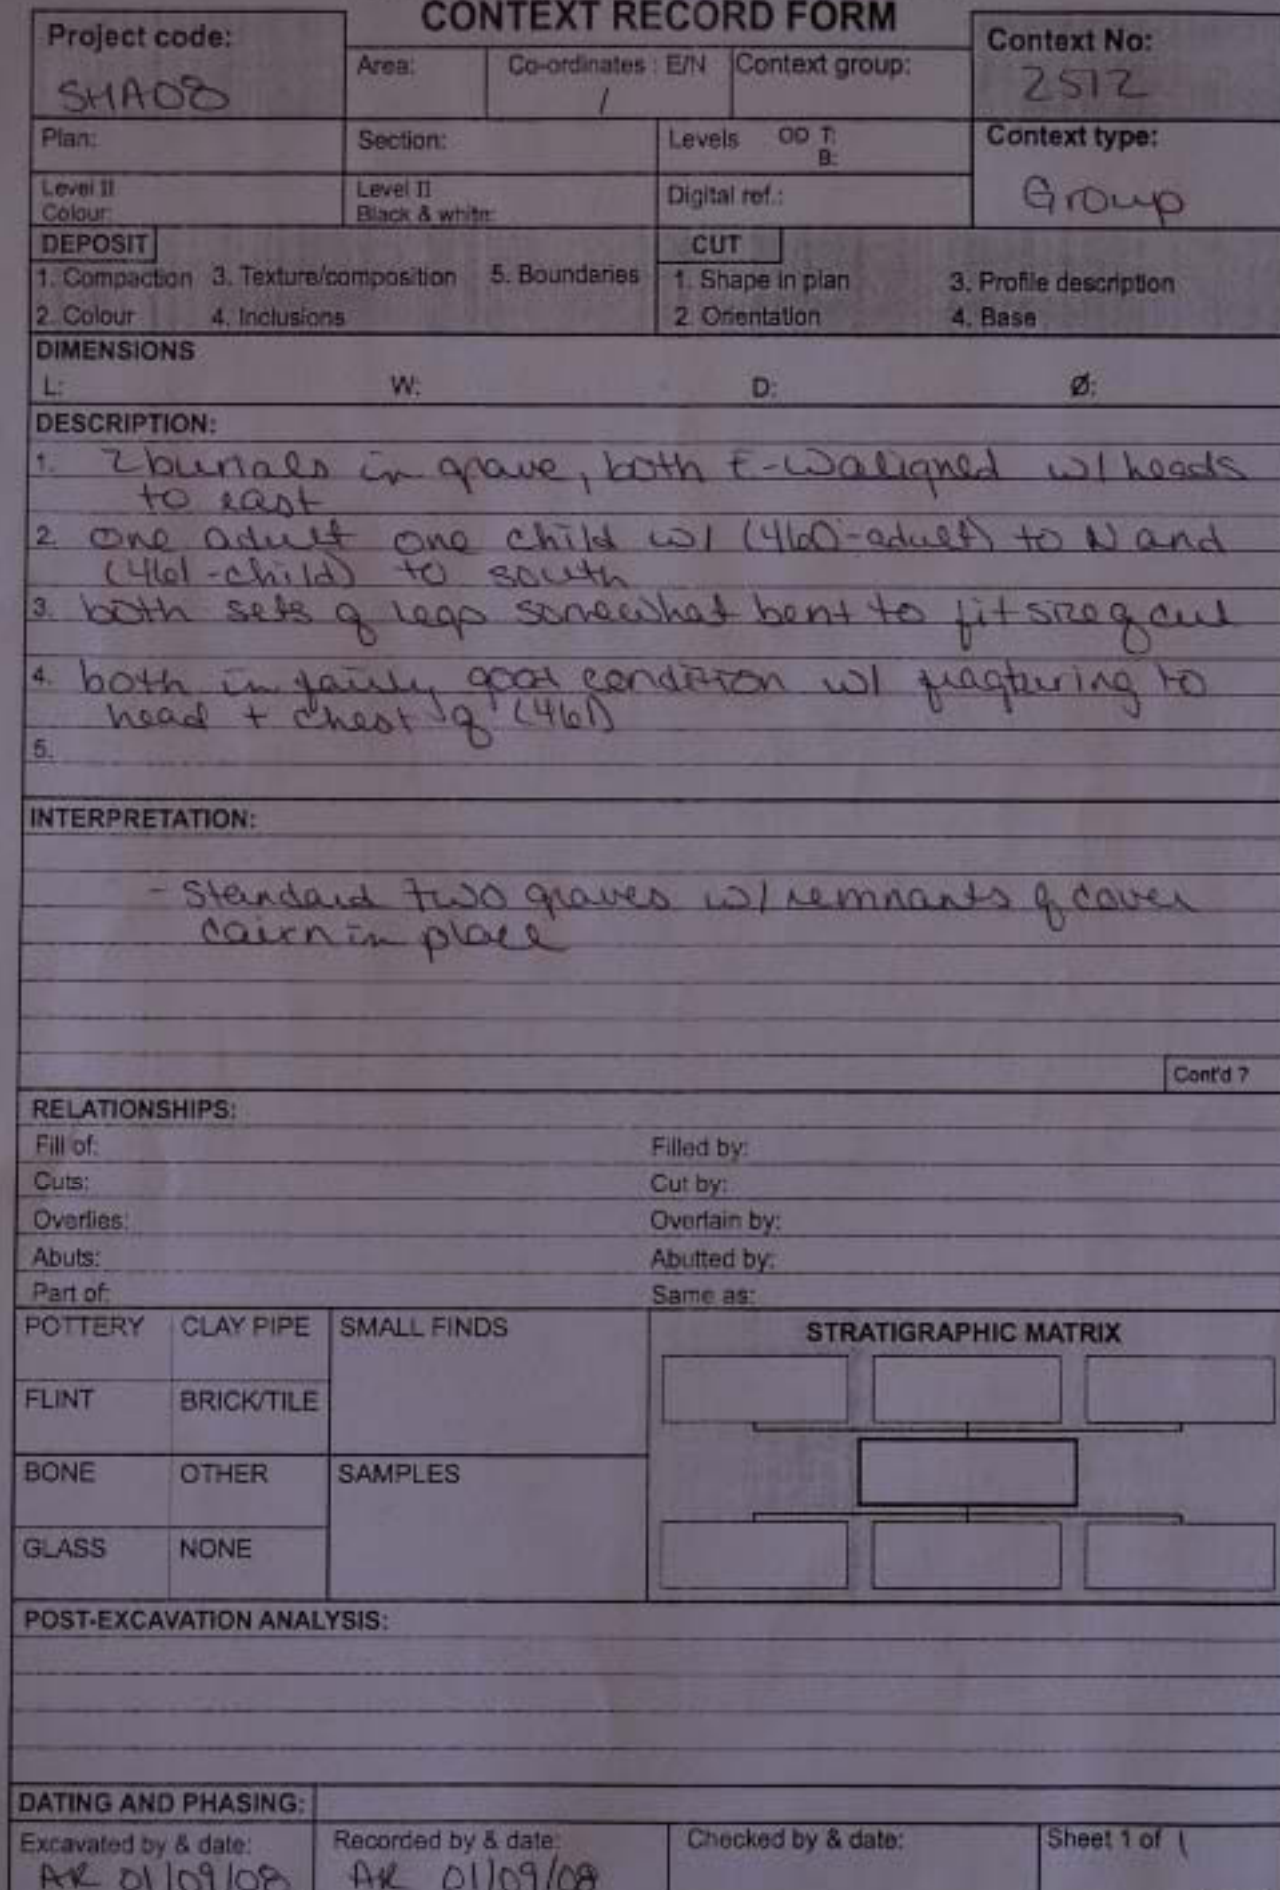 CONTEXT RECORD FORM
Project code:
SHA08
Area:
Co-ordinates : E/N
/
Context group:
Context No:
2512
Plan:
Section:
Levels OD T:
B:
Context type:
Group
Level II
Colour:
Level II
Black & white:
Digital ref.:
DEPOSIT
1. Compaction 3. Texture/composition 5. Boundaries
2. Colour 4. Inclusions
CUT
1. Shape in plan 3. Profile description
2. Orientation 4. Base
DIMENSIONS
L: W: D: Ø:
DESCRIPTION:
1. 2 burials in grave, both E-W aligned w/ heads
to east
2. one adult one child w/ (460-adult) to N and
(461-child) to south
3. both sets of legs somewhat bent to fit size of cut
4. both in fairly good condition w/ fragturing to
head + chest of (461)
5.
INTERPRETATION:
- Standard two graves w/ remnants of cover
cairn in place
Cont'd ?
RELATIONSHIPS:
Fill of: Filled by:
Cuts: Cut by:
Overlies: Overlain by:
Abuts: Abutted by:
Part of: Same as:
POTTERY CLAY PIPE SMALL FINDS
STRATIGRAPHIC MATRIX
FLINT BRICK/TILE
BONE OTHER SAMPLES
GLASS NONE
POST-EXCAVATION ANALYSIS:
DATING AND PHASING:
Excavated by & date:
AR 01/09/08
Recorded by & date:
AR 01/09/08
Checked by & date:
Sheet 1 of 1